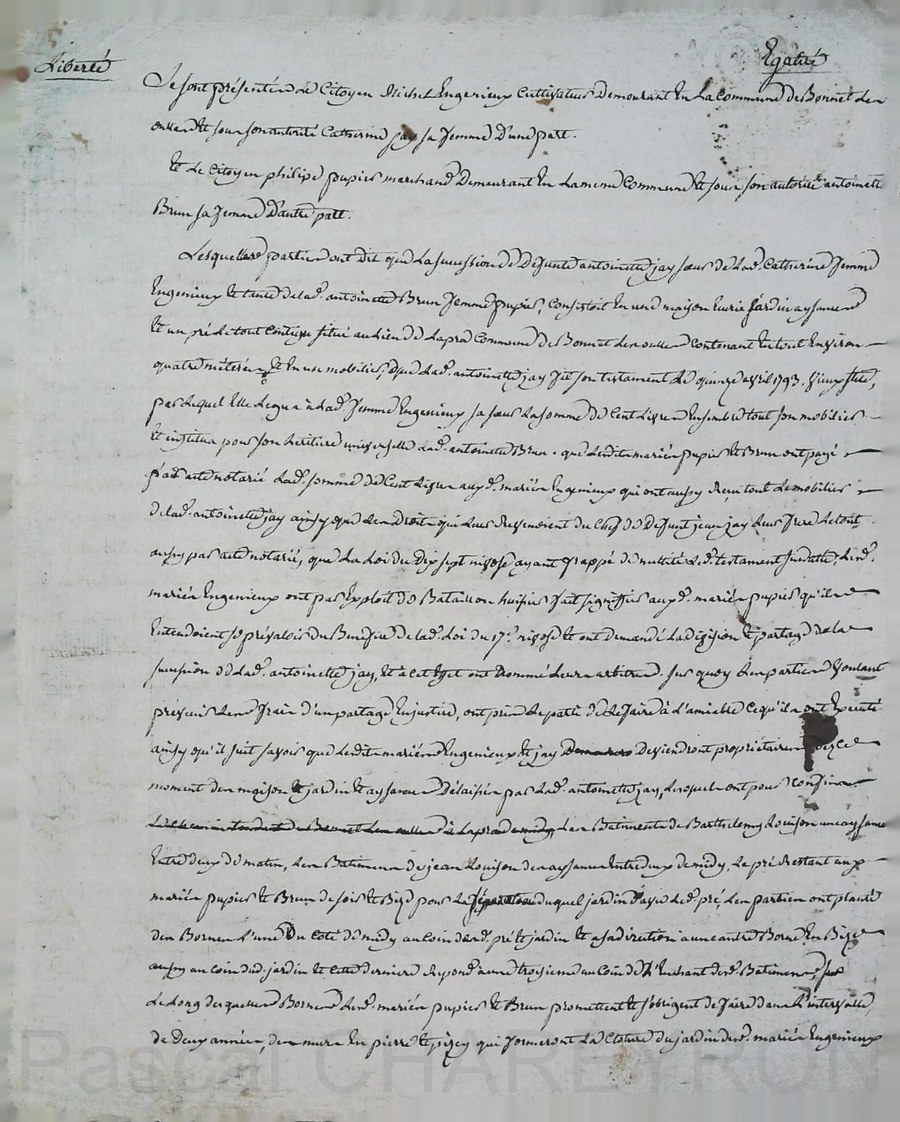 Liberté Egalité
Se sont présentés Le Citoyen Michel Engenieux Cultivateur Demeurant En La Commune de Bonnet Les
oulles Et sous son autorité Catherine jay sa femme D'une part.
Et Le Citoyen philipe pupier marchand Demeurant En La meme Commune Et sous son autorité antoinette
Brun sa femme D'autre part.
Lesquelles parties ont dit que La succession De Defunte antoinette jay sœur de Lad. Catherine femme
Engenieux Et tante de lad. antoinette Brun femme pupier, Consistoit En une maison Ecurie Jardin aysances
Et un pré Le tout Contigu situé au Lieu de Lapra Commune de Bonnet Les oulles Contenant En tout Environ
quatre méterées Et En un mobilier, Que Lad. antoinette jay fit son testament Le quinze avril 1793. vieux stile,
par Lequel Elle Legua à Lad. femme Engenieux sa sœur La somme de Cent Livres Ensemble tout son mobilier
Et institua pour son heritiere universelle Lad. antoinette Brun. que Lesdits mariés pupier Et Brun ont payé
par acte notarié Lad. somme de Cent Livres auxd. mariés Engenieux qui ont aussy Reçu tout Le mobilier
de Lad. antoinette jay ainsy que Les Droits qui Leur Revenoient du Chef de Defunt jean jay Leur frere Le tout
aussy par acte notarié, que La Loi du Dix sept nivose ayant frappé de nullité Led. testament susdatté, Lesd.
mariés Engenieux ont par Exploit de Bataillon huissier fait signiffier auxd. mariés pupier qu'ils
Entendoient se prévaloir du Benefice de Lad. Loi du 17. nivose Et ont demandé La division Et partage de La
succession de Lad. antoinette jay, Et à Cet Effet ont Nommé Leurs arbitres. sur quoy Les parties voulant
prévenir Les frais d'un partage En justice, ont pris Le parti de Le faire à L'amiable Ce qu'ils ont Executé
ainsy qu'il suit savoir que Lesdits mariés Engenieux Et jay Deviendront propriétaires dez Ce
moment des maison Et jardin Et aysances Délaissés par Lad. antoinette jay, Lesquels ont pour Confins
Les Batiments de Barthelemy Louison une aysance
Entre deux de matin, Les Batiments de jean Louison des aysances Entre deux de midy, Le pré Restant aux
mariés pupier Et Brun de soir Et Bize pour La séparation duquel jardin D'avec Led. pré, Les parties ont planté
des Bornes L'une Du Coté de midy au Coin desd. pré Et jardin Et a sa direction à une autre Borne En Bize
aussy au Coin dud. jardin Et Cette derniere Repond à une troisieme au Coin desd. Batiments,
Le Long desquelles Bornes Lesd. mariés pupier Et Brun promettent Et s'obligent de faire dans L'intervalle,
de Deux années, des murs En pierre Et pizey qui formeront La Cloture du jardin desd. mariés Engenieux
Pascal CHAREYRON